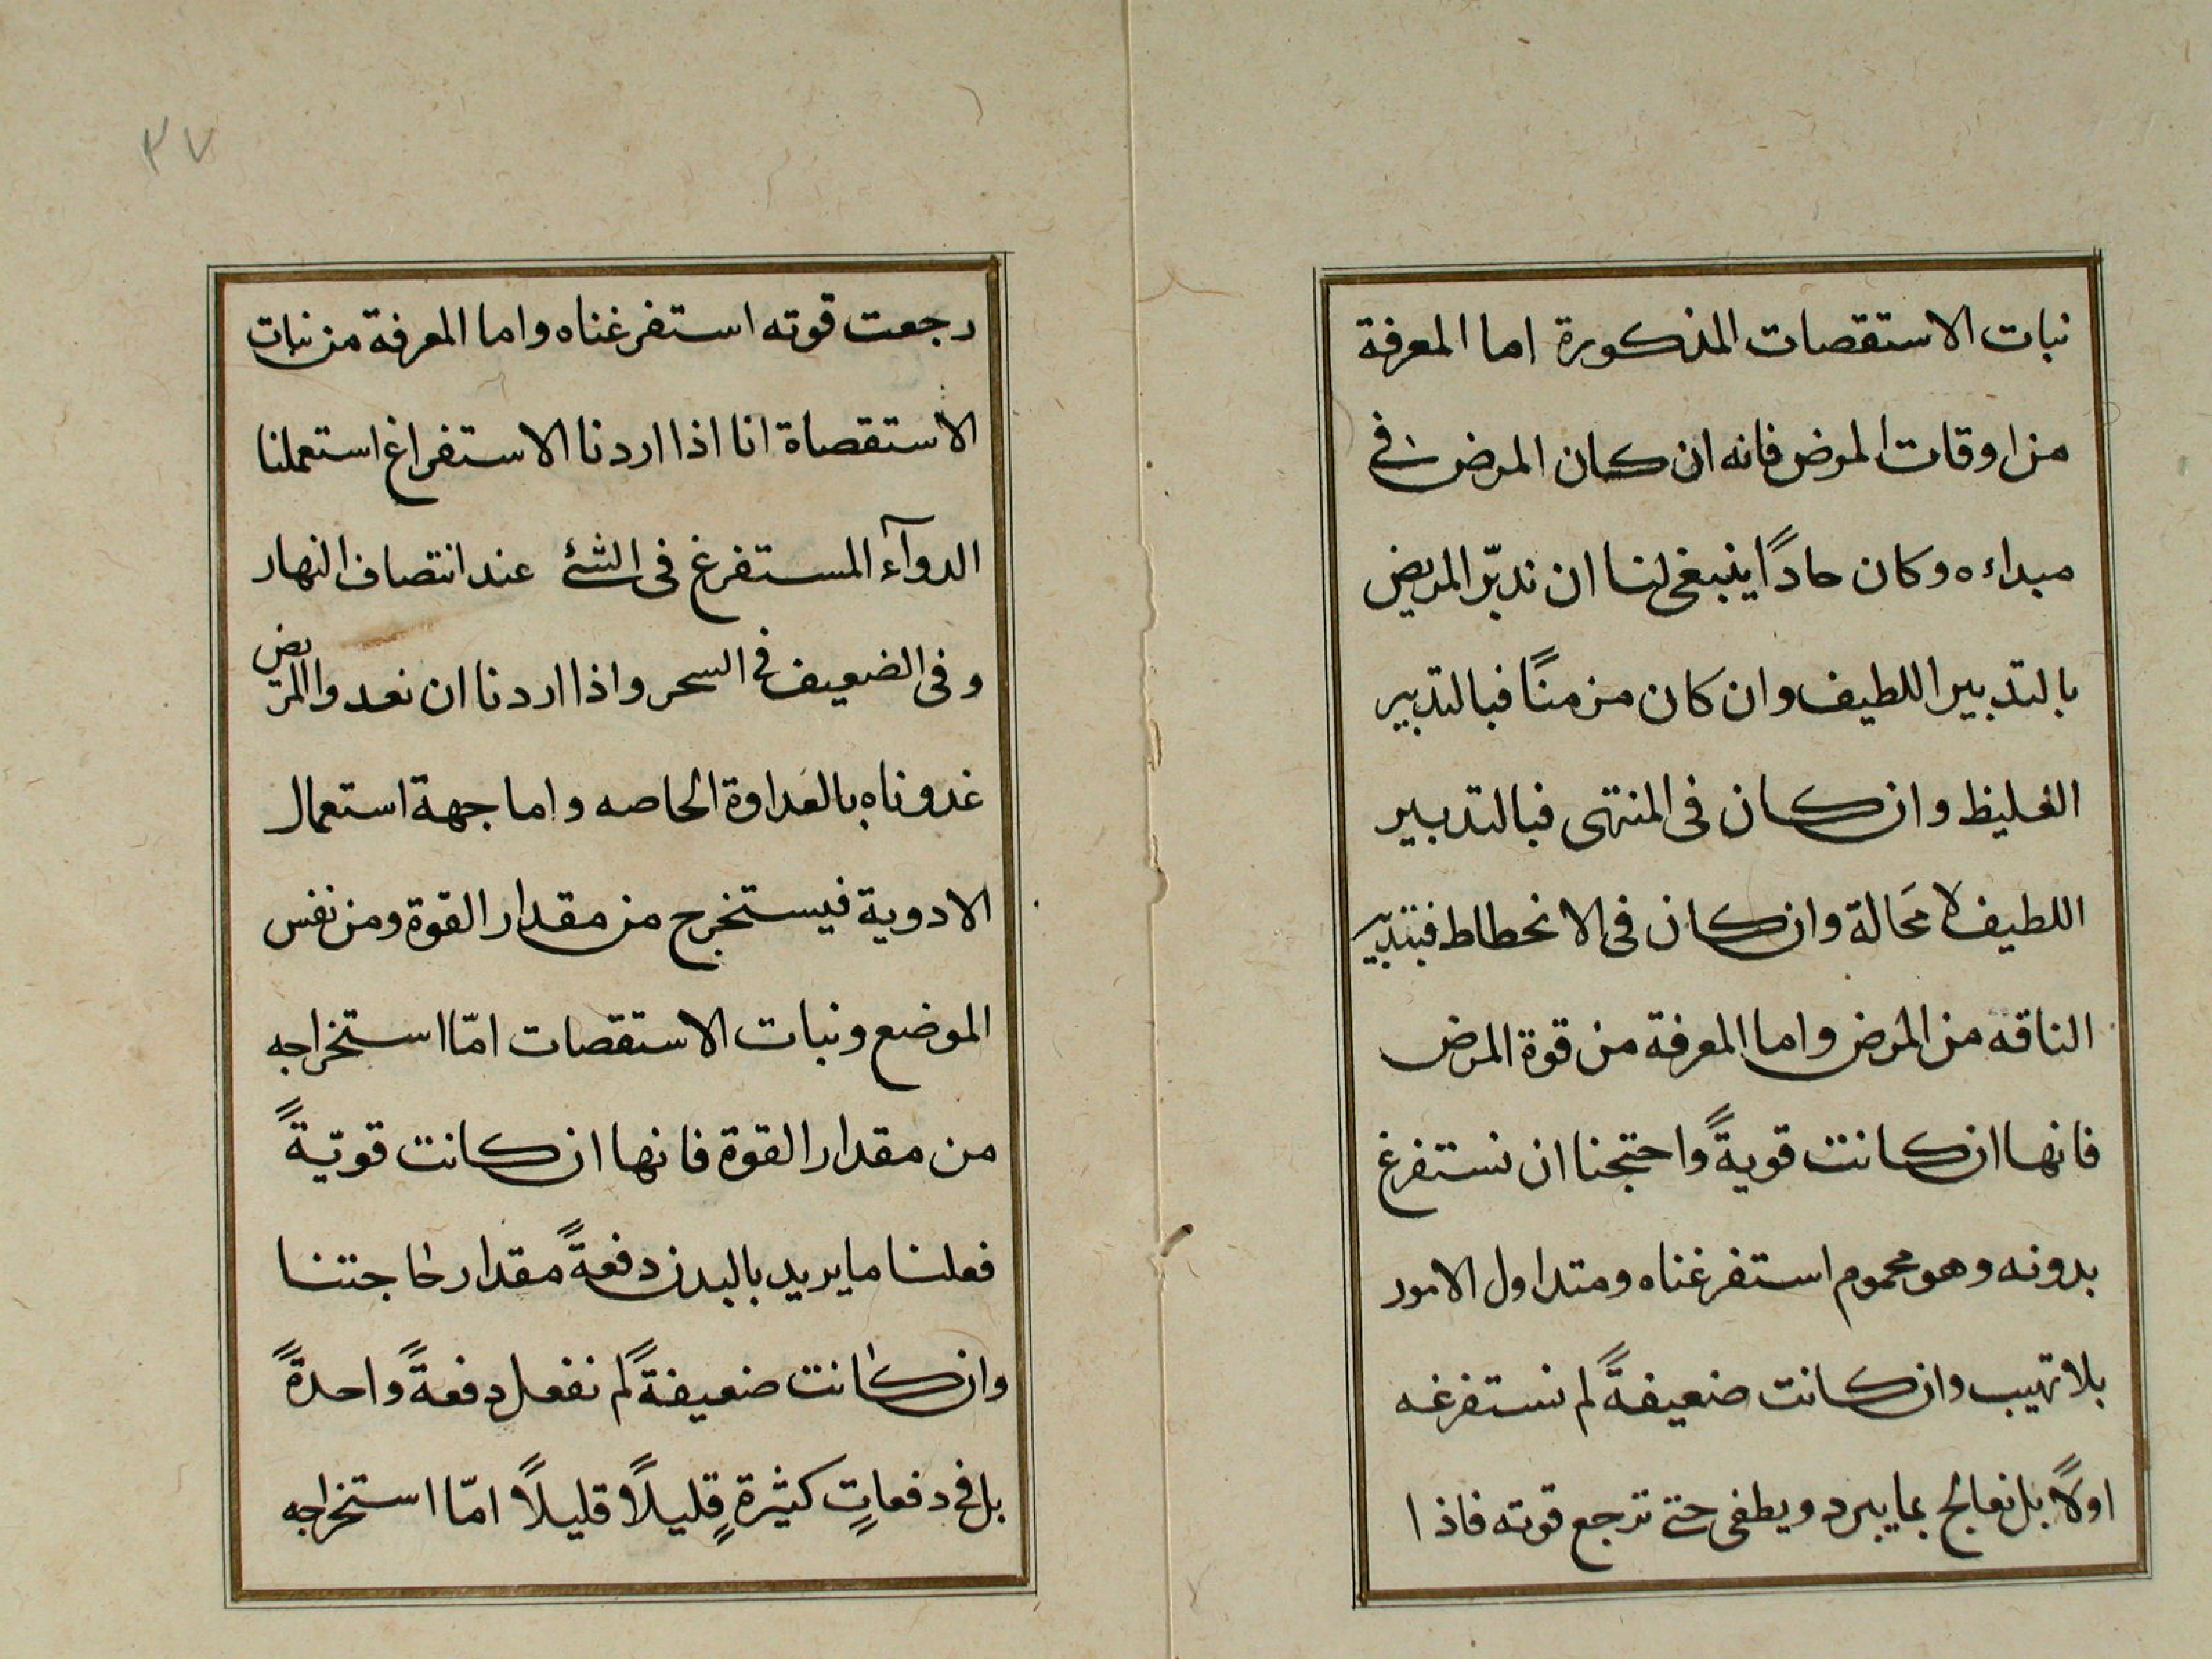 نبات الاستقصات المذكورة اما المعرفة
من اوقات المرض فانه ان كان المرض فى
مبداءه وكان حادًا ينبغى لنا ان ندبّر المريض
بالتدبير اللطيف وان كان مزمنًا فبالتدبير
الغليظ وان كان فى المنتهى فبالتدبير
اللطيف لا محَالة وان كان فى الانحطاط فبتدبير
الناقه من المرض واما المعرفة من قوة المرض
فانها ان كانت قويةً واحتجنا ان نستفرغ
بدونه وهو محموم استفرغناه ومتداول الامور
بلا تهيب وان كانت ضعيفةً لم نستفرغه
اولاً بل نعالج بما يبرد ويطفى حتى ترجع قوته فاذا
٢٧
رجعت قوته استفرغناه واما المعرفة من نبات
الاستقصاة انا اذا اردنا الاستفراغ استعملنا
الدوآء المستفرغ فى الشئ عند انتصاف النهار
وفى الضعيف فى السحر واذا اردنا ان نعدوا المريض
غدوناه بالغداوة الخاصه واما جهة استعمال
الادوية فيستخرج من مقدار القوة ومن نفس
الموضع ونبات الاستقصات امّا استخراجه
من مقدار القوة فانها ان كانت قويّةً
فعلنا ما يريد بالبدن دفعةً مقدار حاجتنا
وان كانت ضعيفةً لم نفعل دفعةً واحدةً
بل فى دفعاتٍ كثيرةٍ قليلاً قليلاً امّا استخراجه